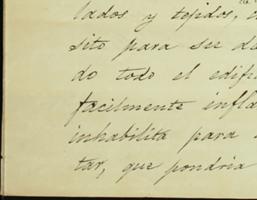 lados y tejidos,
sito para ser de
do todo el edifi
facilmente infla
inhabilita para
tar, que pondria